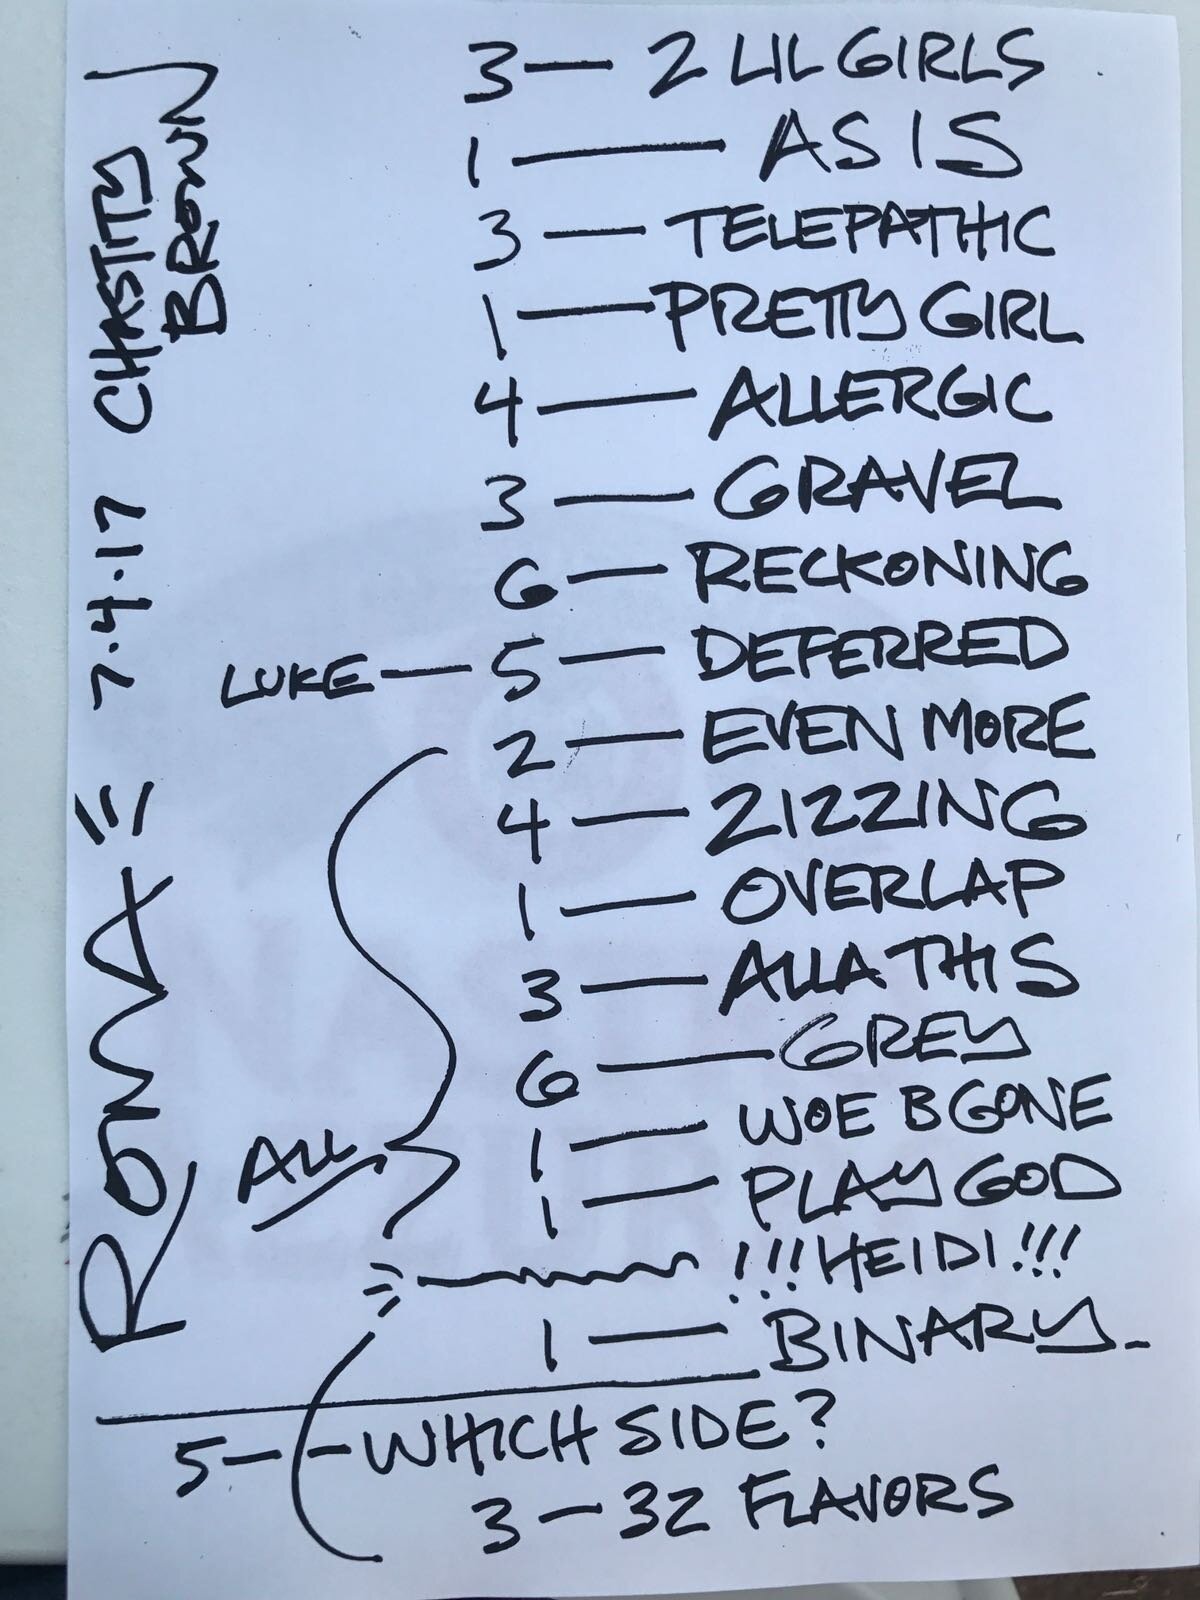 3 — 2 LIL GIRLS
1 — AS IS
3 — TELEPATHIC
1 — PRETTY GIRL
4 — ALLERGIC
3 — GRAVEL
6 — RECKONING
LUKE — 5 — DEFERRED
2 — EVEN MORE
4 — ZIZZING
1 — OVERLAP
3 — ALLA THIS
6 — GREY
1 — WOE B GONE
ALL
1 — PLAY GOD
!!! HEIDI !!!
1 — BINARY
5 — WHICH SIDE?
3 — 32 FLAVORS
ROMA 7.4.17 CHASTITY
BROWN